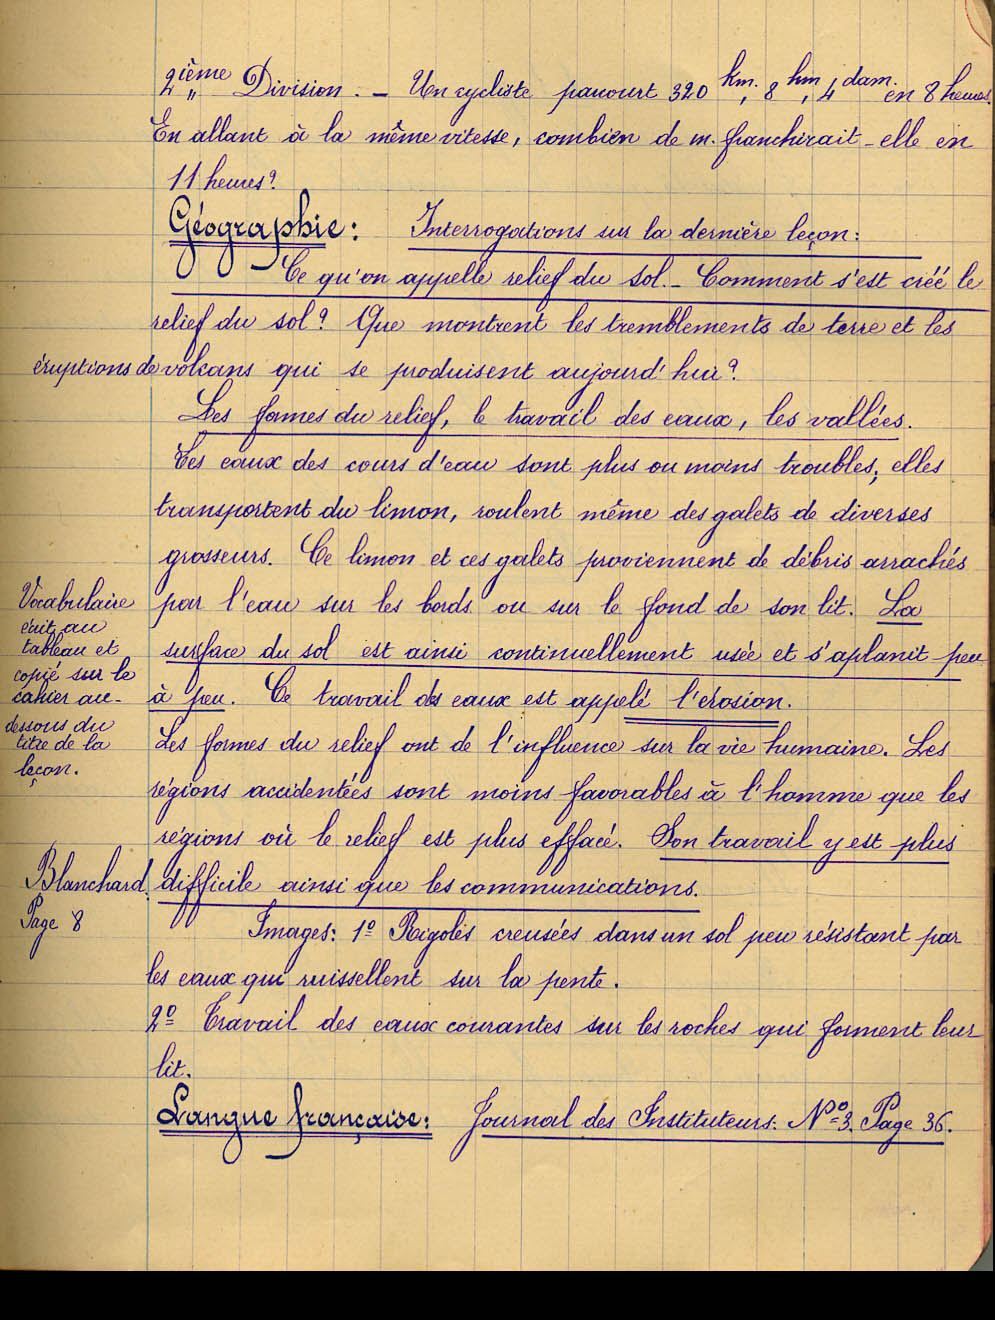 2ième Division. — Un cycliste parcourt 320 km, 8 hm, 4 dam. en 8 heures.
En allant à la même vitesse, combien de m. franchirait-elle en
11 heures?
Géographie: Interrogations sur la dernière leçon:
Ce qu'on appelle relief du sol. — Comment s'est créé le
relief du sol? Que montrent les tremblements de terre et les
éruptions de volcans qui se produisent aujourd'hui?
Les formes du relief, le travail des eaux, les vallées.
Les eaux des cours d'eau sont plus ou moins troubles; elles
transportent du limon, roulent même des galets de diverses
grosseurs. Ce limon et ces galets proviennent de débris arrachés
par l'eau sur les bords ou sur le fond de son lit. La
surface du sol est ainsi continuellement usée et s'aplanit peu
à peu. Ce travail des eaux est appelé l'érosion.
Les formes du relief ont de l'influence sur la vie humaine. Les
régions accidentées sont moins favorables à l'homme que les
régions où le relief est plus effacé. Son travail y est plus
difficile ainsi que les communications.
Images: 1º Rigoles creusées dans un sol peu résistant par
les eaux qui ruissellent sur la pente.
2º Travail des eaux courantes sur les roches qui forment leur
lit.
Langue française: Journal des Instituteurs. Nº 3. Page 36.
Vocabulaire
écrit au
tableau et
copié sur le
cahier au-
dessous du
titre de la
leçon.
Blanchard.
Page 8